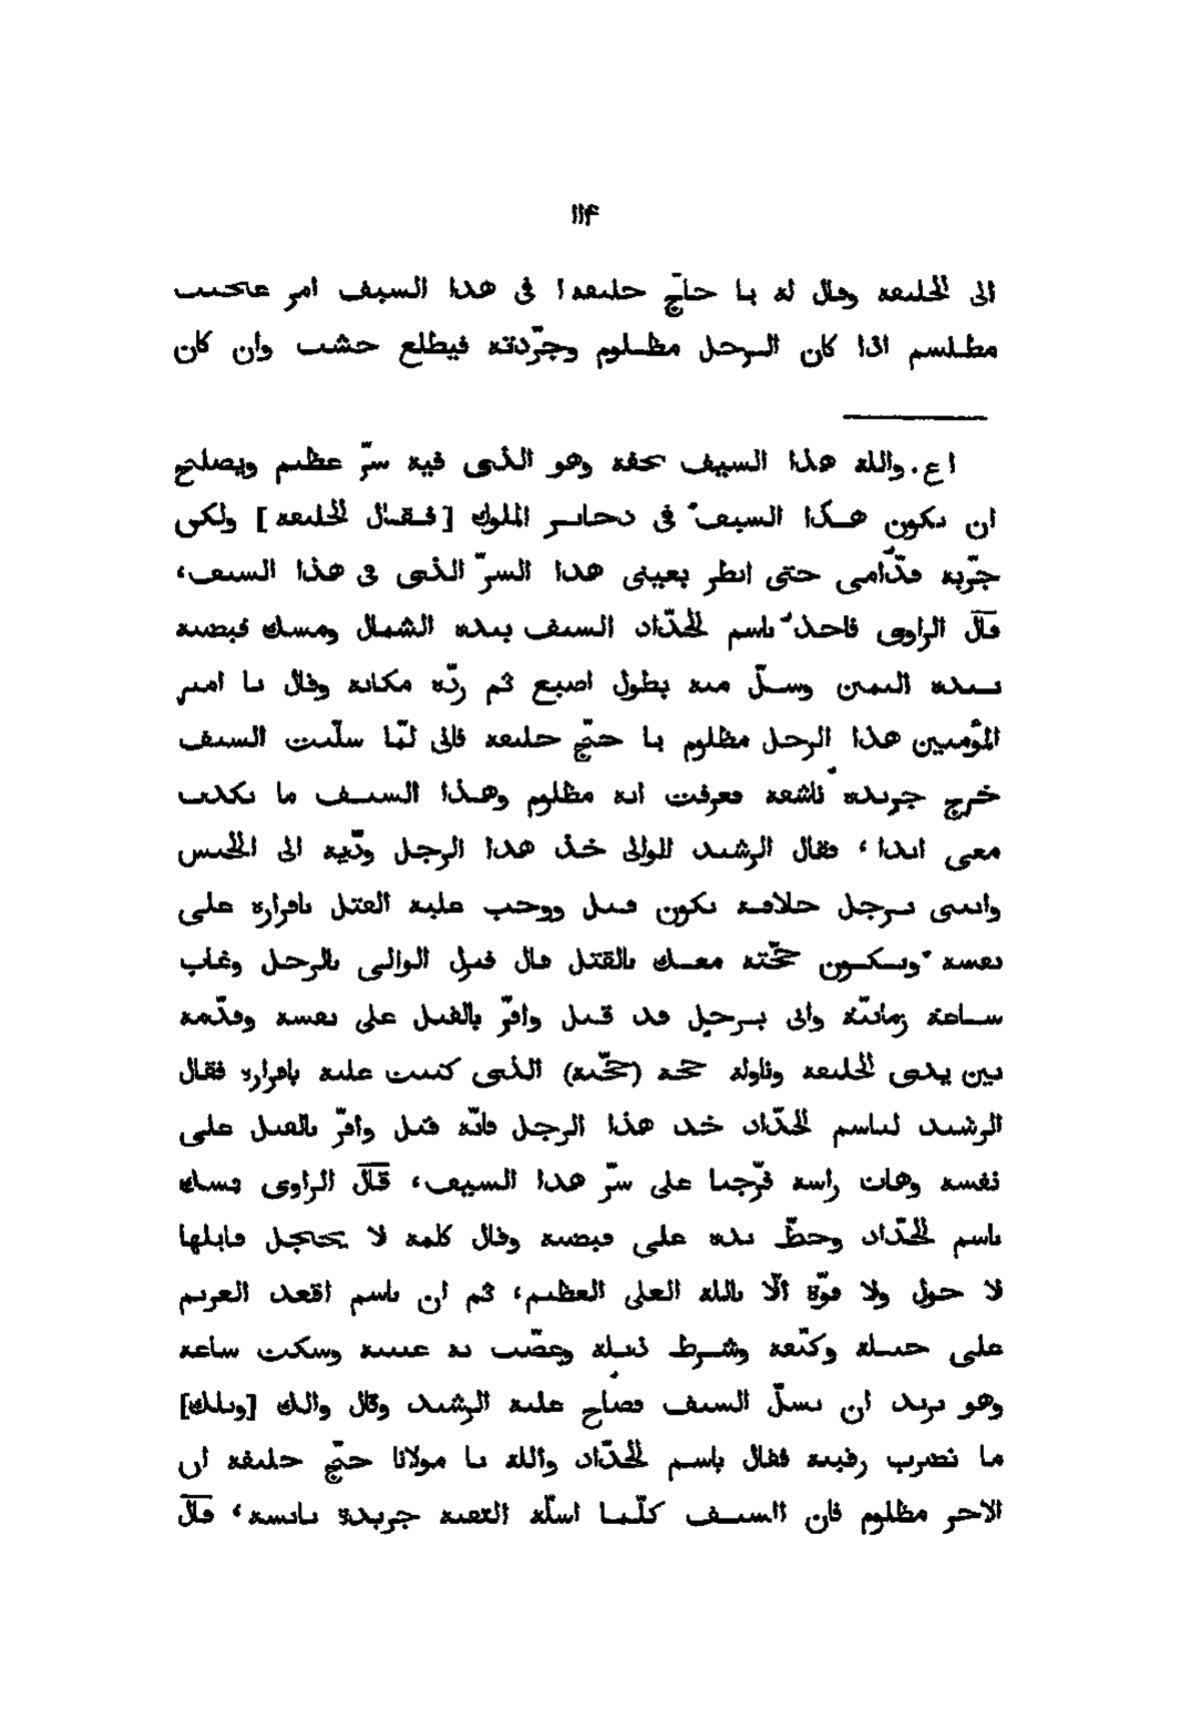 ١١۴
الى الخليفة وقال له يا حاجّ خليفة١ فى هذا السيف امر عاجيب
مطلسم اذا كان الرجل مظلوم وجرّدته فيطلع خشب وان كان
١ ع. والله هذا السيف تحفة وهو الذى فيه سرّ عظيم ويصلح
ان يكون هكذا السيف فى دخاير الملوك [فقال الخليفة] ولكن
جرّبه قدّامى حتى انظر بعينى هذا السرّ الذى فى هذا السيف،
قال الراوى فاخذ باسم الحدّاد السيف بيده الشمال ومسك قبضته
بيده اليمين وسلّ منه بطول اصبع ثم ردّه مكانه وقال يا امير
المؤمنين هذا الرجل مظلوم يا حجّ خليفة فانى لمّا سلّيت السيف
خرج جريدة ناشفة فعرفت انه مظلوم وهذا السيف ما يكذب
معى ابدا، فقال الرشيد للوالى خذ هذا الرجل ودّيه الى الحبس
وايتنى برجل خلافه يكون قتل ووجب عليه القتل باقراره على
نفسه وتكون حجّته معك بالقتل قال فنزل الوالى بالرجل وغاب
ساعة زمانيّة واتى برجل قد قتل واقرّ بالقتل على نفسه وقدّمه
بين يدى الخليفة وناوله حجّه (حجّته) الذى كتبت عليه باقراره فقال
الرشيد لباسم الحدّاد خذ هذا الرجل فانّه قتل واقرّ بالقتل على
نفسه وهات راسه فرّجنا على سرّ هذا السيف، قال الراوى فمسك
باسم الحدّاد وحطّ يده على قبضته وقال كلمة لا يخجل قايلها
لا حول ولا قوّة الّا بالله العلى العظيم، ثم ان باسم اقعد الغريم
على حيله وكتّفه وشرط ذيله وعصّب به عينيه وسكت ساعة
وهو يريد ان يسلّ السيف فصاح عليه الرشيد وقال والك [ويلك]
ما تضرب رقبته فقال باسم الحدّاد والله يا مولانا حجّ خليفة ان
الاخر مظلوم فان السيف كلّما اسلّه التقيه جريدة يابسة، قال